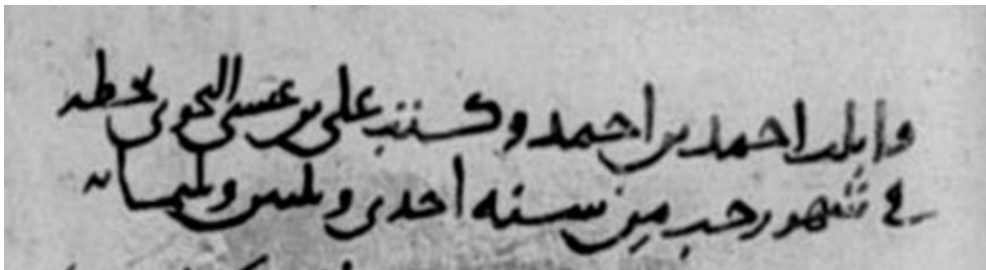 احمد بن احمد وكتب علي بن عيسى النحوي بخطه
في شهر رجب من سنه احدى وثلثين وثلثمائه